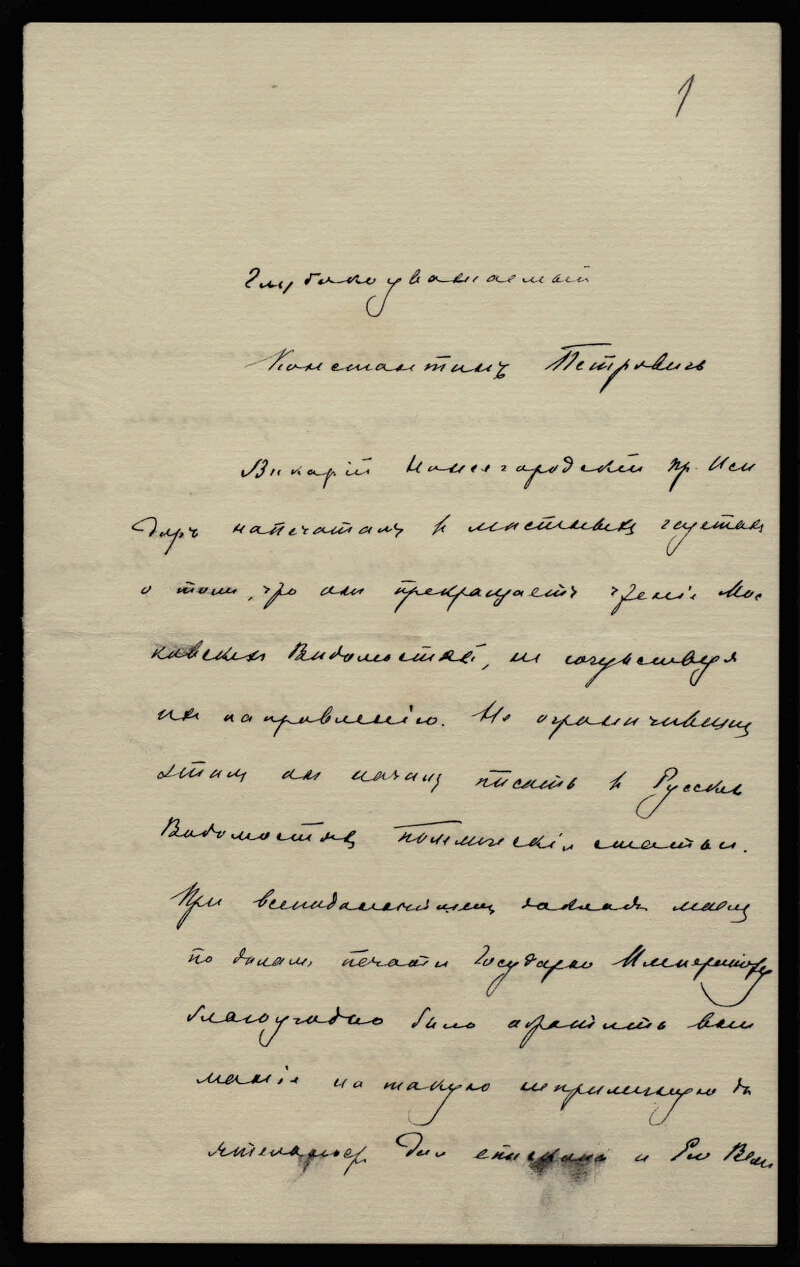 1
Глубокоуважаемый
Константинъ Петровичъ
Викарій Нижегородскій пр. Иси
доръ напечаталъ въ мѣстныхъ газетахъ
о томъ, что онъ прекращаетъ чтеніе Мос
ковскихъ Вѣдомостей, не сочувствуя
ихъ направленію. Не ограничившись
этимъ онъ началъ писать въ Русскихъ
Вѣдомостяхъ полемическія статьи.
При всеподданнѣйшемъ докладѣ моемъ
по дѣламъ печати Государю Императору
благоугодно было обратить вни
маніе на такую неприличную дѣ
ятельность для епископа и Его Вели